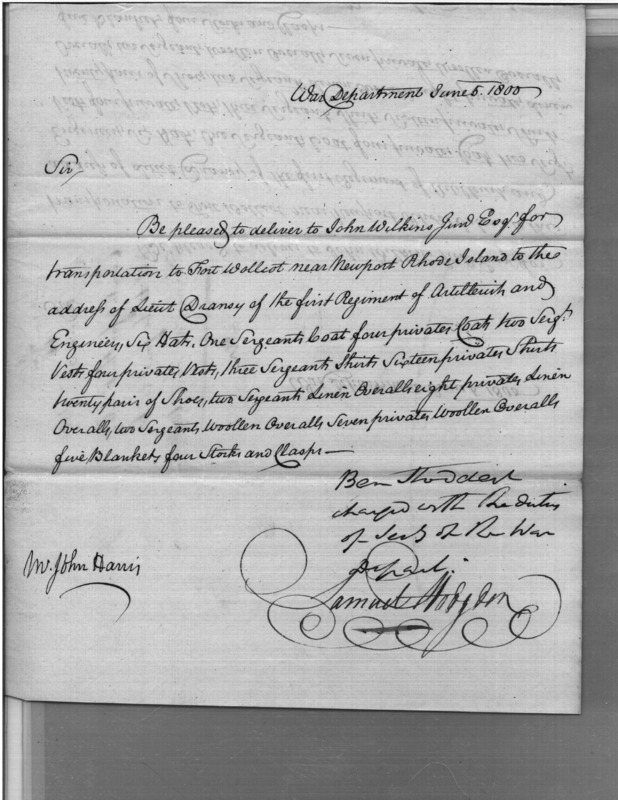 War Department June 5. 1800
Sir
Be pleased to deliver to John Wilkins Junr Esqr. for
transportation to Fort Wolcot near Newport Rhode Island to the
address of Lieut Dransy of the first Regiment of Artillerist and
Engineers, Six Hats, One Sergeants Coat four privates Coats two Sergts
Vests four privates Vests, three Sergeants Shirts Sixteen privates Shirts
twenty pair of Shoes, two Sergeants Linen Overalls eight privates Linen
Overalls, two Sergeants Woollen Overalls Seven privates Woollen Overalls
five Blankets four Stocks and Clasps —
Ben Stoddert
charged with the duties
of Secy of the War
Depart.
Mr. John Harris
Samuel Hodgdon